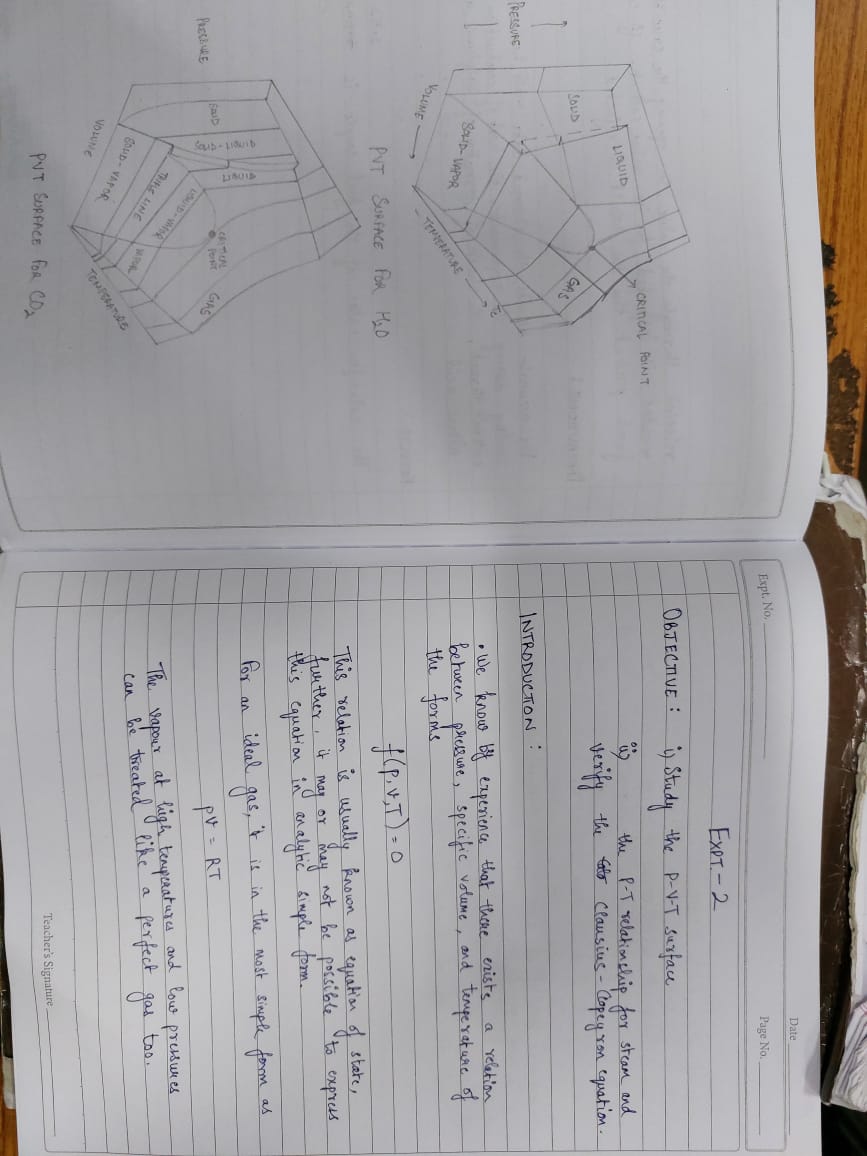 LIQUID
CRITICAL POINT
SOLID
GAS
PRESSURE
SOLID-VAPOR
VOLUME
TEMPERATURE
PVT SURFACE FOR H2O
SOLID
SOLID-LIQUID
LIQUID
CRITICAL
POINT
GAS
PRESSURE
LIQUID-VAPOR
TRIPLE LINE
VAPOR
SOLID-VAPOR
VOLUME
TEMPERATURE
PVT SURFACE FOR CO2
Date
Expt. No.
Page No.
EXPT.-2
OBJECTIVE : i) Study the P-V-T surface
ii) the P-T relationship for steam and
verify the Clausius-Clapeyron equation.
INTRODUCTION :
• We know by experience that there exists a relation
between pressure, specific volume, and temperature of
the forms
f(p,v,T) = 0
This relation is usually known as equation of state,
further, it may or may not be possible to express
this equation in analytic simple form.
For an ideal gas, it is in the most simple form as
pv = RT
The vapour at high temperatures and low pressures
can be treated like a perfect gas too.
Teacher's Signature